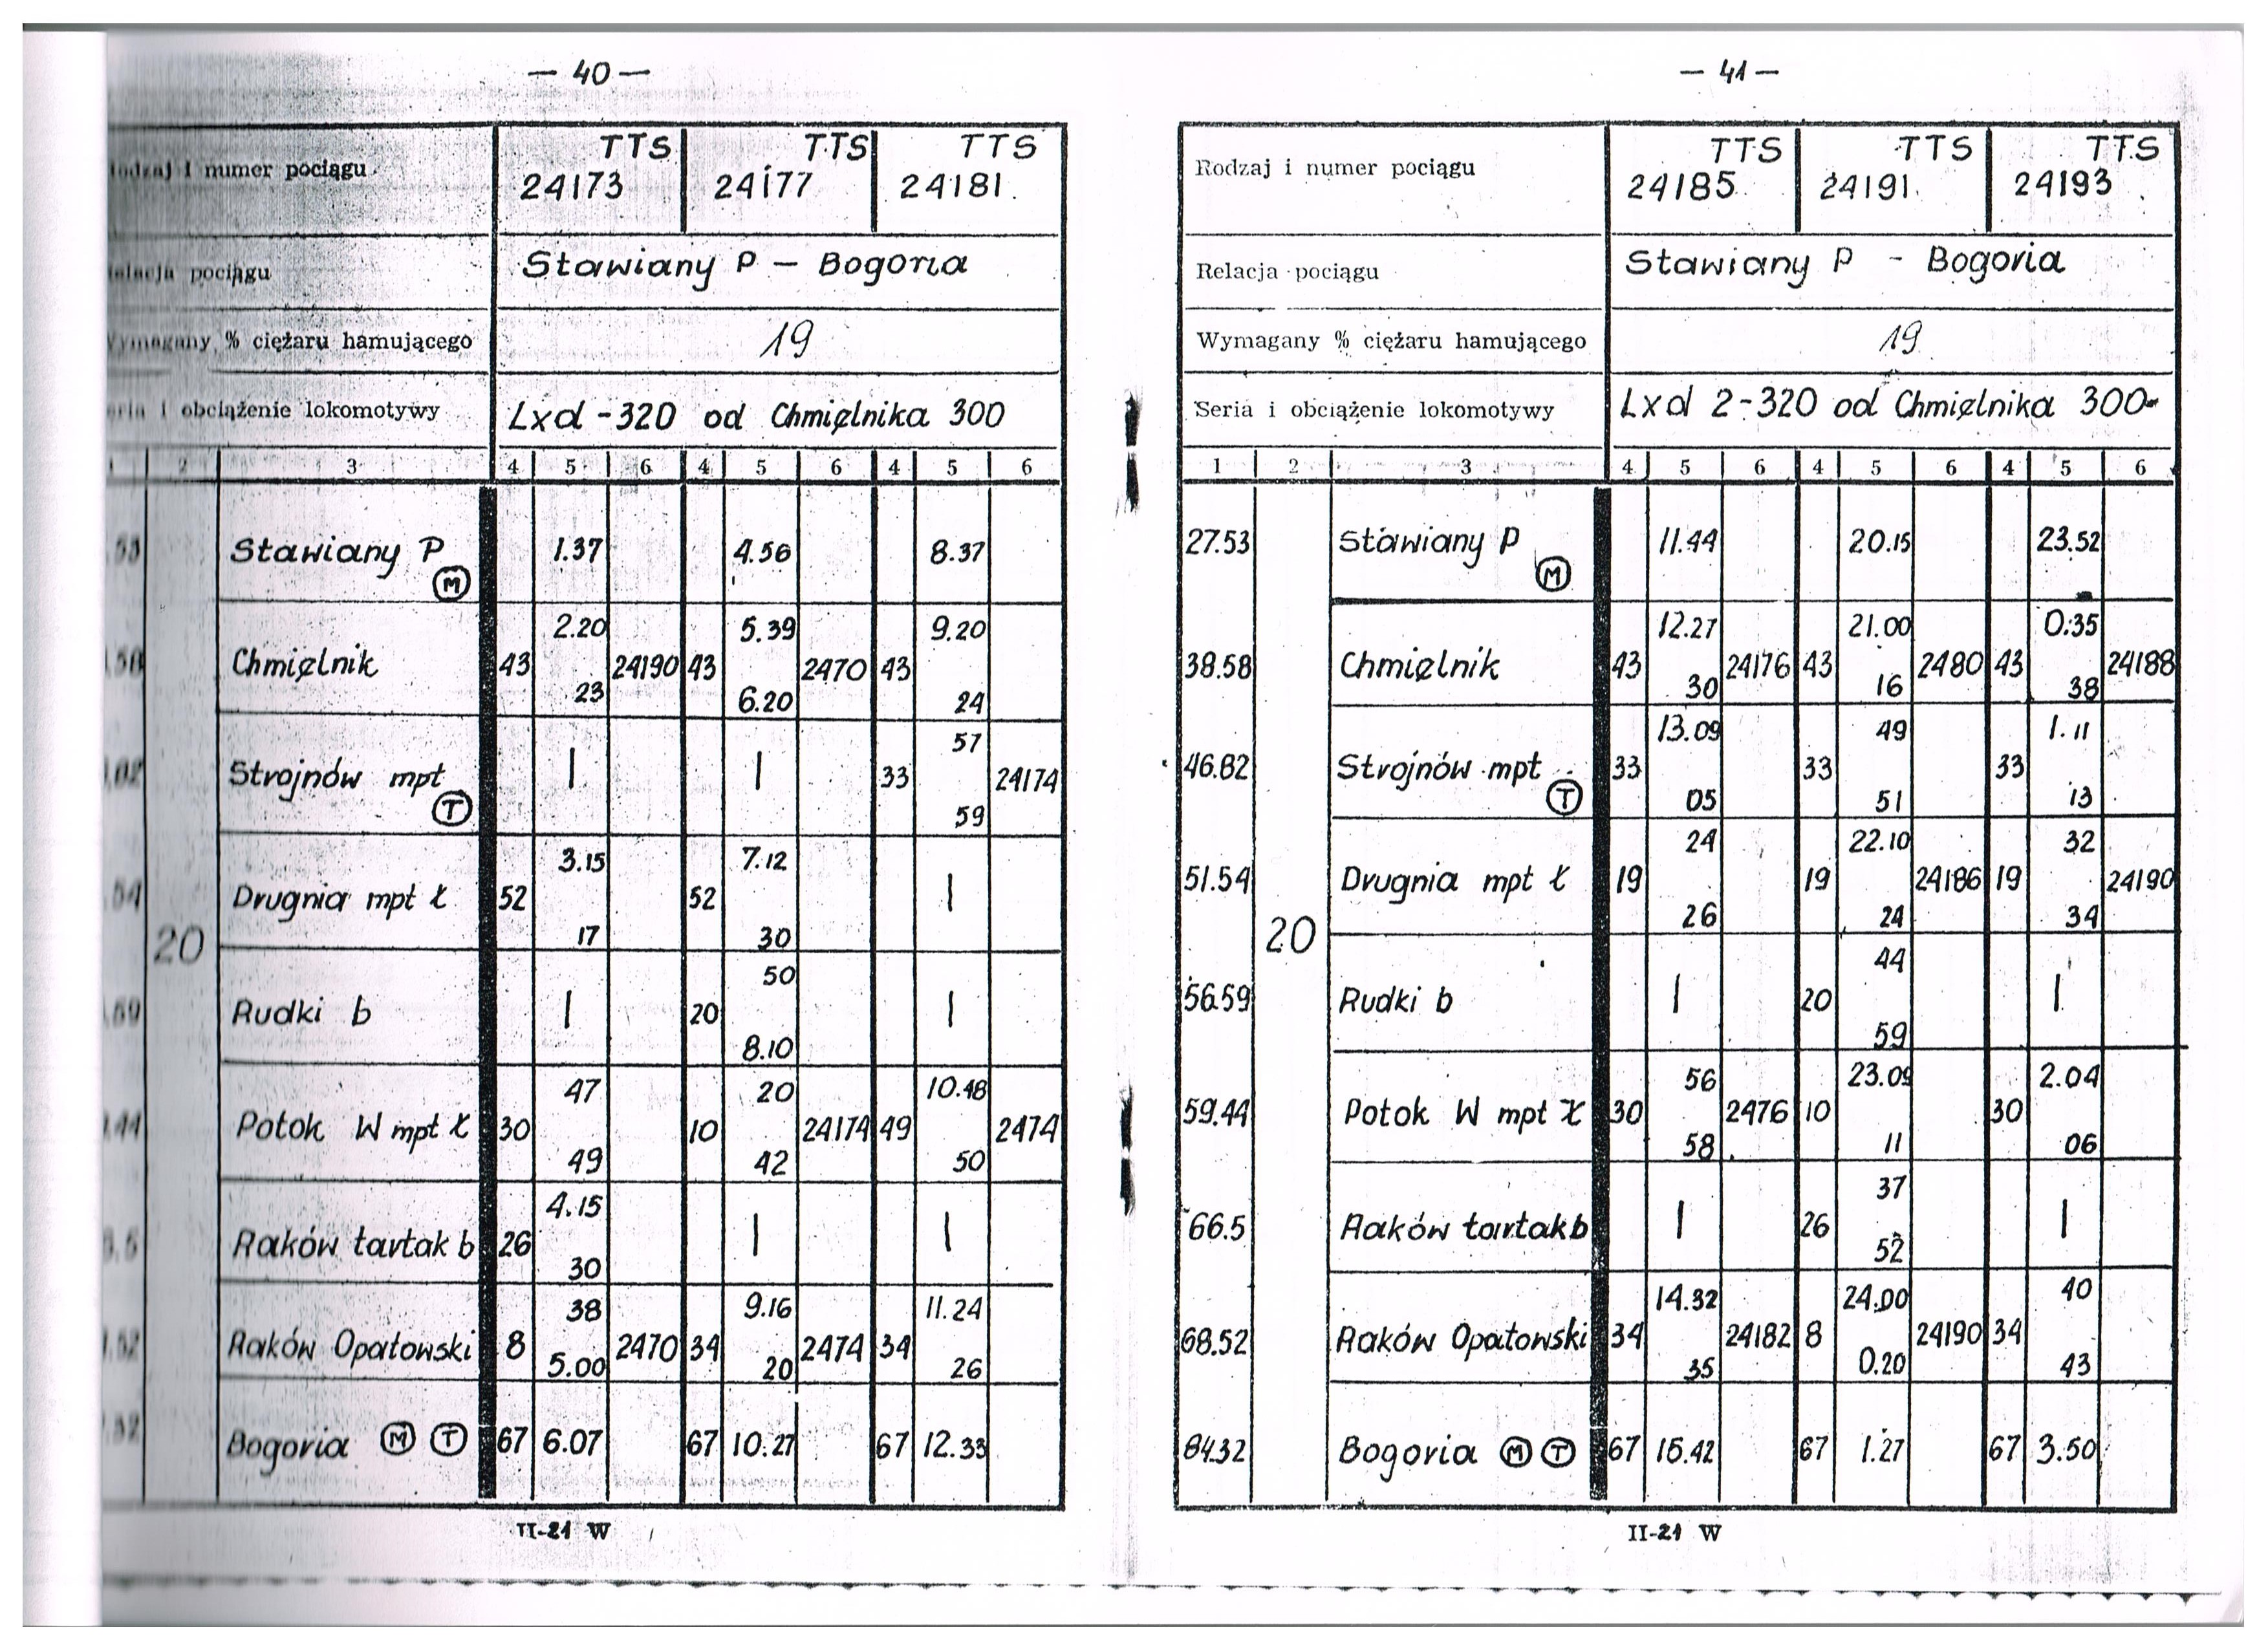 — 40 —
numer pociągu
TTS TTS TTS
24173 24177 24181
pociągu
Stawiany P – Bogoria
% ciężaru hamującego
19
i obciążenie lokomotywy
Lxd -320 od Chmielnika 300
2 3 4 5 6 4 5 6 4 5 6
Stawiany P M 1.37 4.56 8.37
2.20 5.39 9.20
Chmielnik 43 24190 43 2470 43
23 6.20 24
57
Strojnów mpt T | | 33 24174
59
3.15 7.12
Drugnia mpt ł 52 52 |
17 30
20
50
Rudki b | 20 |
8.10
47 20 10.48
Potok W mpt ł 30 10 24174 49 2474
49 42 50
4.15
Raków tartak b 26 | |
30
38 9.16 11.24
Raków Opatowski 8 2470 34 2474 34
5.00 20 26
Bogoria M T 67 6.07 67 10.27 67 12.33
II-21 W
— 41 —
Rodzaj i numer pociągu
TTS TTS TTS
24185 24191 24193
Relacja pociągu
Stawiany P - Bogoria
Wymagany % ciężaru hamującego
19
Seria i obciążenie lokomotywy
Lxd 2-320 od Chmielnika 300
1 2 3 4 5 6 4 5 6 4 5 6
27.53 Stawiany P M 11.44 20.15 23.52
12.27 21.00 0.35
38.58 Chmielnik 43 24176 43 2480 43 24188
30 16 38
13.09 49 1.11
46.82 Strojnów mpt T 33 33 33
05 51 13
24 22.10 32
51.54 Drugnia mpt ł 19 19 24186 19 24190
26 24 34
20
44
56.59 Rudki b | 20 |
59
56 23.09 2.04
59.44 Potok W mpt ł 30 2476 10 30
58 11 06
37
66.5 Raków tartak b | 26 |
52
14.32 24.00 40
68.52 Raków Opatowski 34 24182 8 24190 34
35 0.20 43
84.32 Bogoria M T 67 15.42 67 1.27 67 3.50
II-21 W